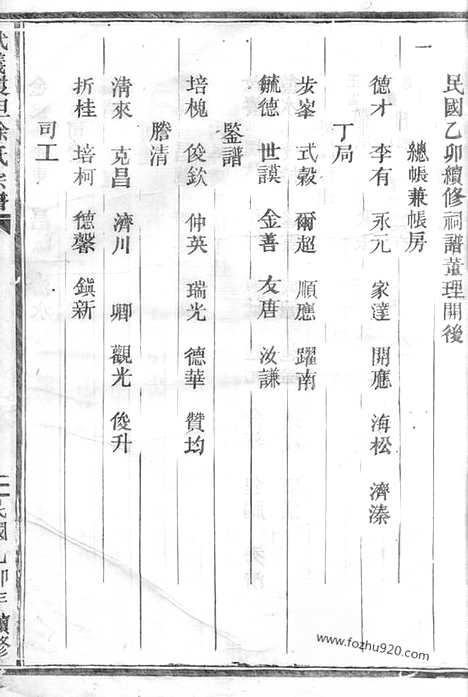 民國乙卯續修祠譜董理開後
總帳兼帳房
一
德才 李有 永元 家達 開應 海松 濟溱
丁局
步峯 式穀 爾超 順應 躍南
毓德 世謨 金善 友唐 汝謙
鑒譜
培槐 俊欽 仲英 瑞光 德華 贊均
謄清
清來 克昌 濟川 卿 觀光 俊升
折桂 培柯 德馨 鎭新
司工
徐氏宗譜
民國乙卯年續修
www.fozhu920.com